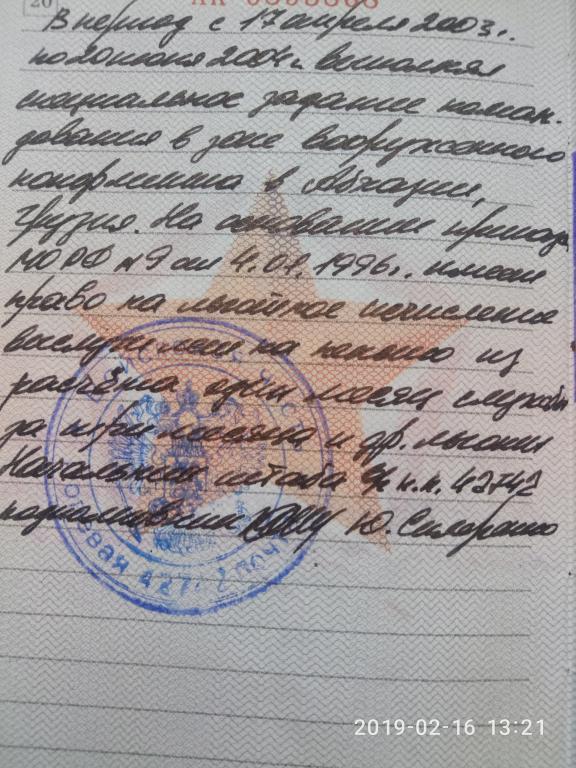 20
В период с 17 апреля 2003 г.
по 20 июня 2004 г. выполнял
специальное задание коман-
дования в зоне вооруженного
конфликта в Абхазии,
Грузия. На основании приказа
МО РФ №9 от 4.01.1996г. имеет
право на льготное исчисление
выслуги лет на пенсию из
расчёта один месяц службы
за три месяца и др. льготы
Начальник штаба в/ч п.п. 42742
подполковник Ю. Сидоренко
полевая почта
2019-02-16 13:21